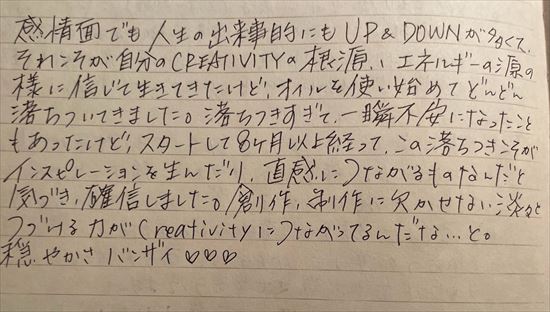 感情面でも人生の出来事的にもUP&DOWNが多くて、
それこそが自分のCREATIVITYの根源、エネルギーの源の
様に信じて生きてきたけど、オイルを使い始めてどんどん
落ちついてきました。落ちつきすぎて、一瞬不安になったこと
もあったけど、スタートして8ヶ月以上経って、この落ちつきこそが
インスピレーションを生んだり、直感につながるものなんだと
気づき、確信しました。創作、制作に欠かせない淡々と
つづける力がCreativityにつながってるんだな…と。
穏やかさ バンザイ ♡♡♡